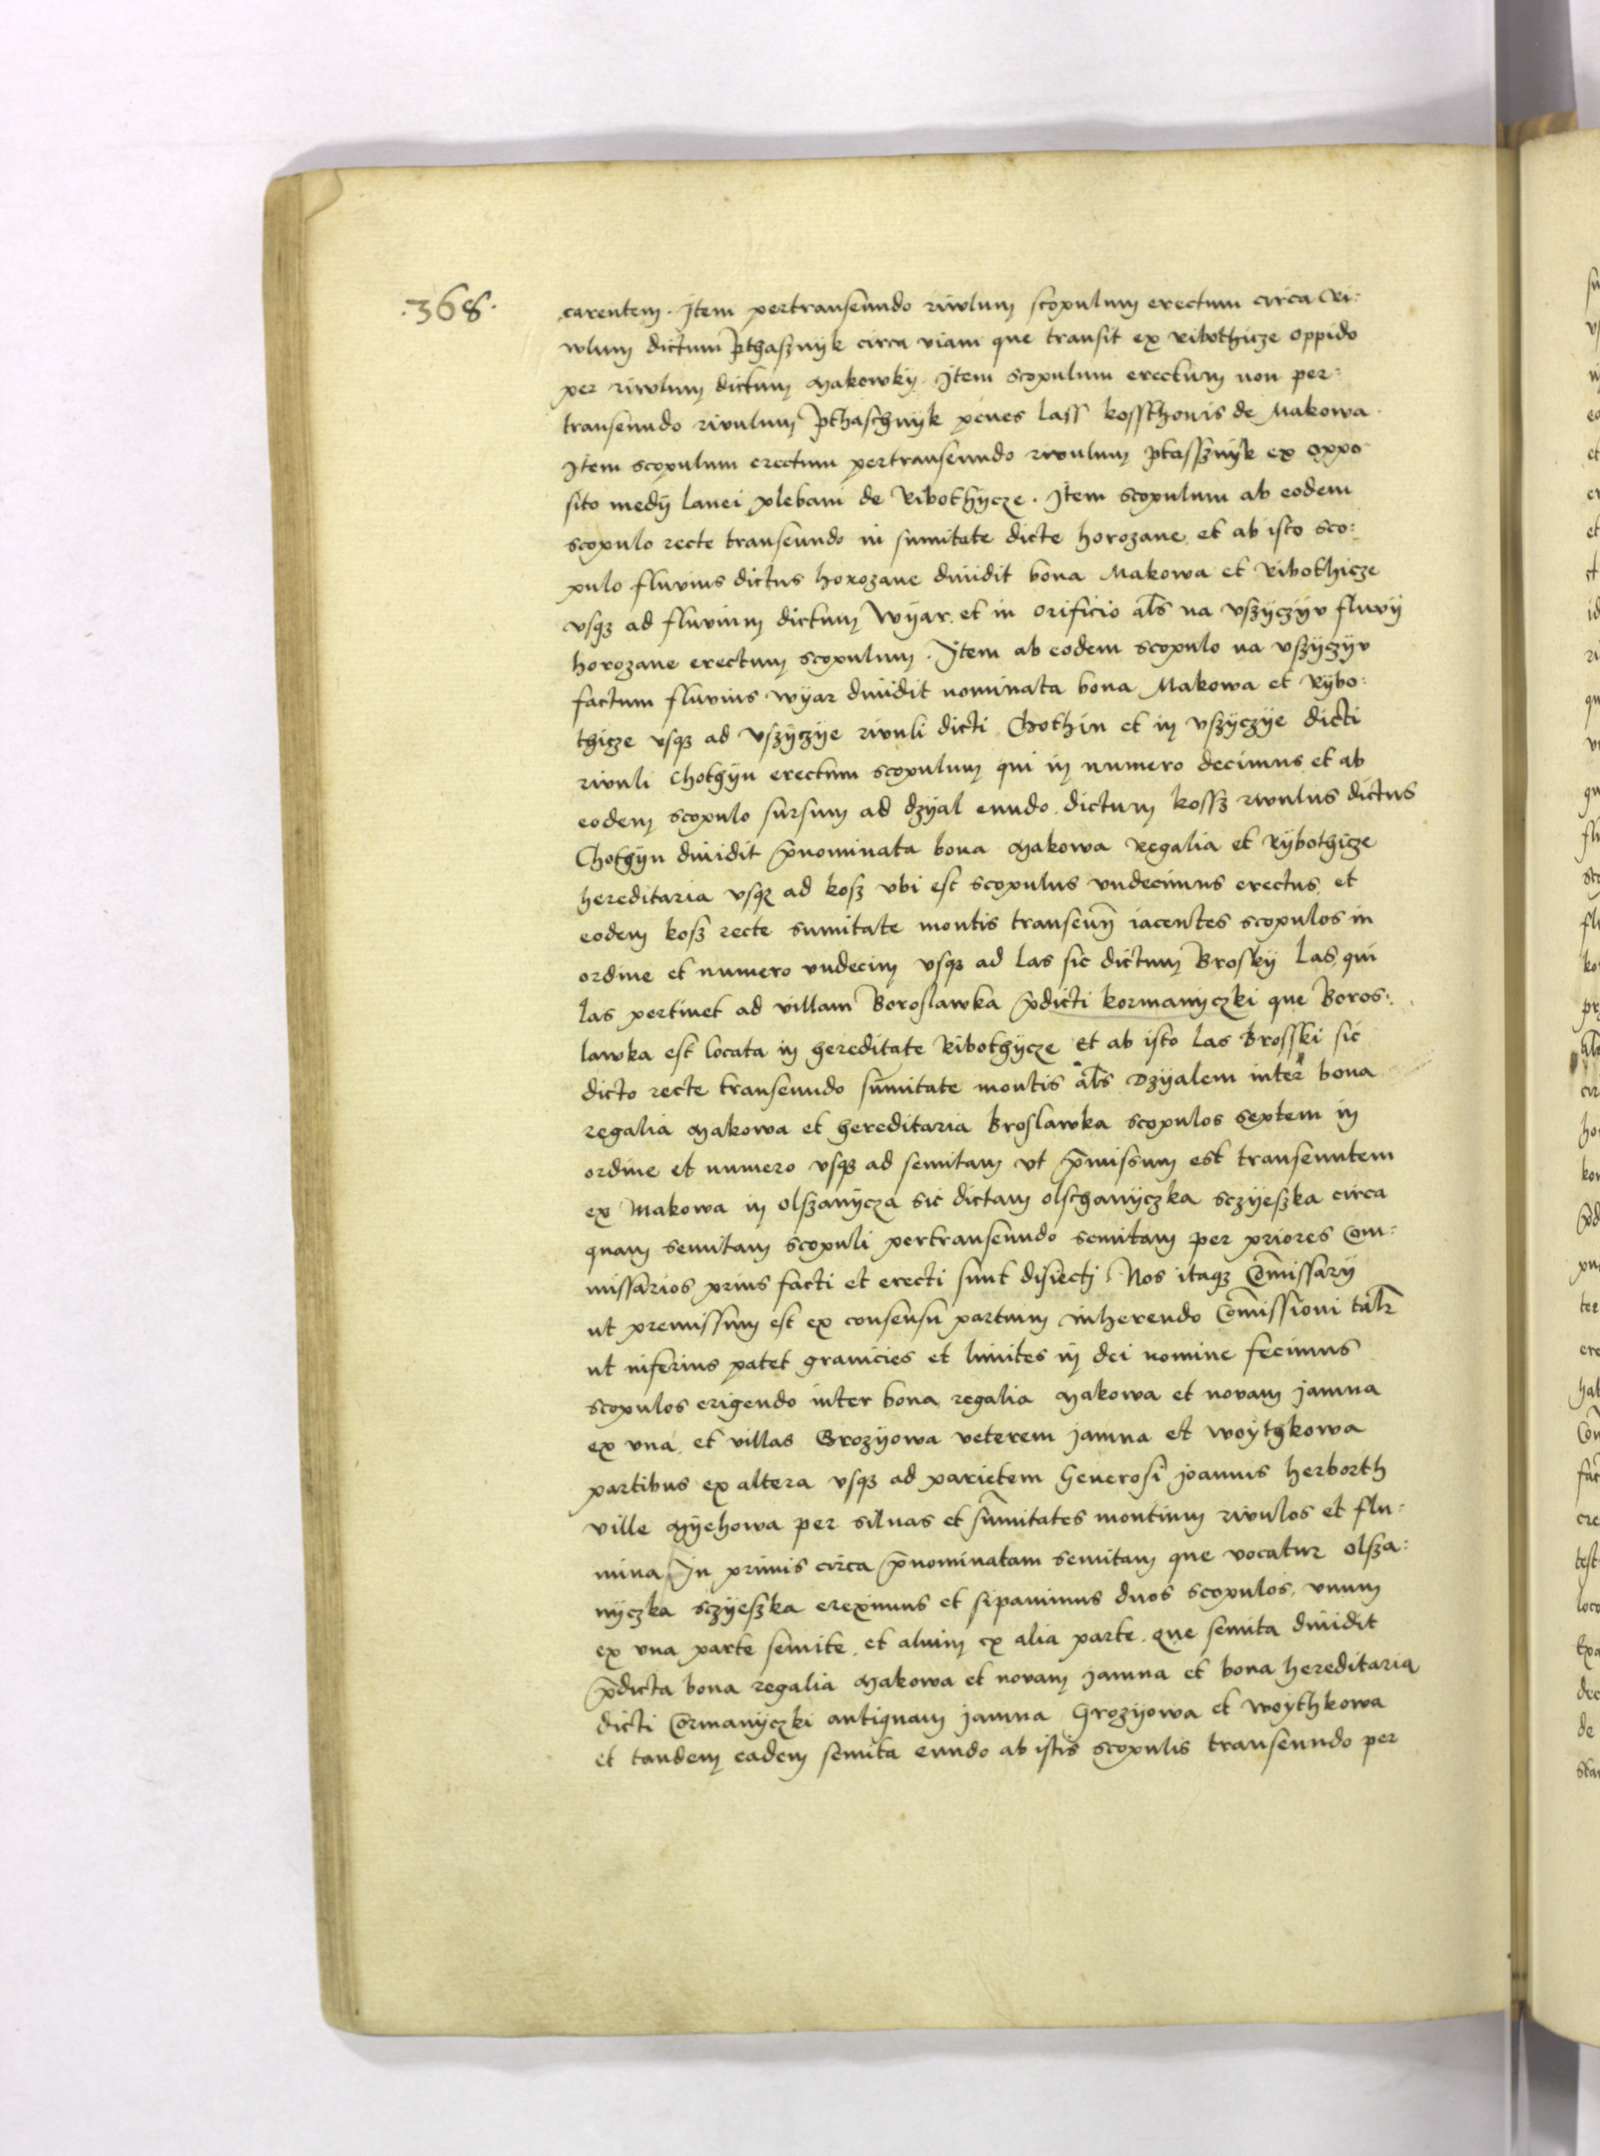 .368.
carentem. Item pertranseundo rivulum scopulum erectum circa Ri:
wlum dictum Pthasznyk circa viam que transit ex Ribothicze oppido
per rivulum dictum Makowky. Item scopulum erectum non per:
transeundo rivulum Pthaschnyk penes lass kossthonis de Makowa.
Item scopulum erectum pertranseundo rivulum ptassznyk ex oppo
sito medÿ lanei plebani de Ribothycze. Item scopulum ab eodem
scopulo recte transeundo in sumitate dicte horozane et ab isto sco:
pulo fluvius dictus horozane dividit bona Makowa et Ribothicze
vsqz ad fluvium dictum Wyar et in orificio al̃s na vszyczyv fluvÿ
horozane erectum scopulum. Item ab eodem scopulo na vszyczyv
factum fluvius wyar dividit nominata bona Makowa et Rybo:
thicze vsqz ad vszyczye rivuli dicti Chothin et in vszyczye dicti
rivuli Chothyn erectum scopulum qui in numero decimus et ab
eodem scopulo sursum ad dzyal eundo dictum kossz rivulus dictus
Chothyn dividit p̃nominata bona Makowa Regalia et Rybothicze
hereditaria vsqz ad kosz vbi est scopulus vndecimus erectus et
eodem kosz recte sumitate montis transeuñ iacentes scopulos in
ordine et numero vndecim vsqz ad las sic dictum Brosky las, qui
las pertinet ad villam Boroslawka p̃dicti kormanyczki que Boros:
lawka est locata in hereditate Ribothycze et ab isto las Brosski sic
dicto recte transeundo sum̃itate montis al̃s Dzyalem inter bona
regalia Makowa et hereditaria Broslawka scopulos septem in
ordine et numero vsqz ad semitam vt p̃missum est transeuntem
ex Makowa in olszanycza sic dictam olschanyczka sczyeszka circa
quam semitam scopuli pertranseundo semitam per priores Com:
missarios prius facti et erecti sunt disiecti. Nos itaqz Com̃issarÿ
ut premissum est ex consensu partium inherendo Com̃issioni talr̃
ut inferius patet granicies et limites in dei nomine fecimus
scopulos erigendo inter bona regalia Makowa et novam Jamna
ex vna et villas Grozyowa veterem Jamna et woythkowa
partibus ex altera vsqz ad parietem Generosi Joannis herborth
ville Myehowa per siluas et sum̃itates montium rivulos et flu:
mina. In primis circa p̃nominatam semitam que vocatur olsza:
nyczka sczyeszka ereximus et sipavimus duos scopulos, vnum
ex vna parte semite, et alium ex alia parte. que semita dividit
p̃dicta bona regalia Makowa et novam Jamna et bona hereditaria
dicti Cormanyczki antiquam Jamna Grozyowa et woythkowa
et tandem eadem semita eundo ab istis scopulis transeundo per